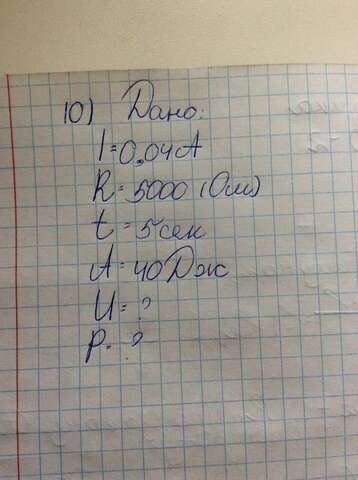 10) Дано:
I=0,04А
R=5000 (Ом)
t=5сек
A=40Дж
U=?
P=?